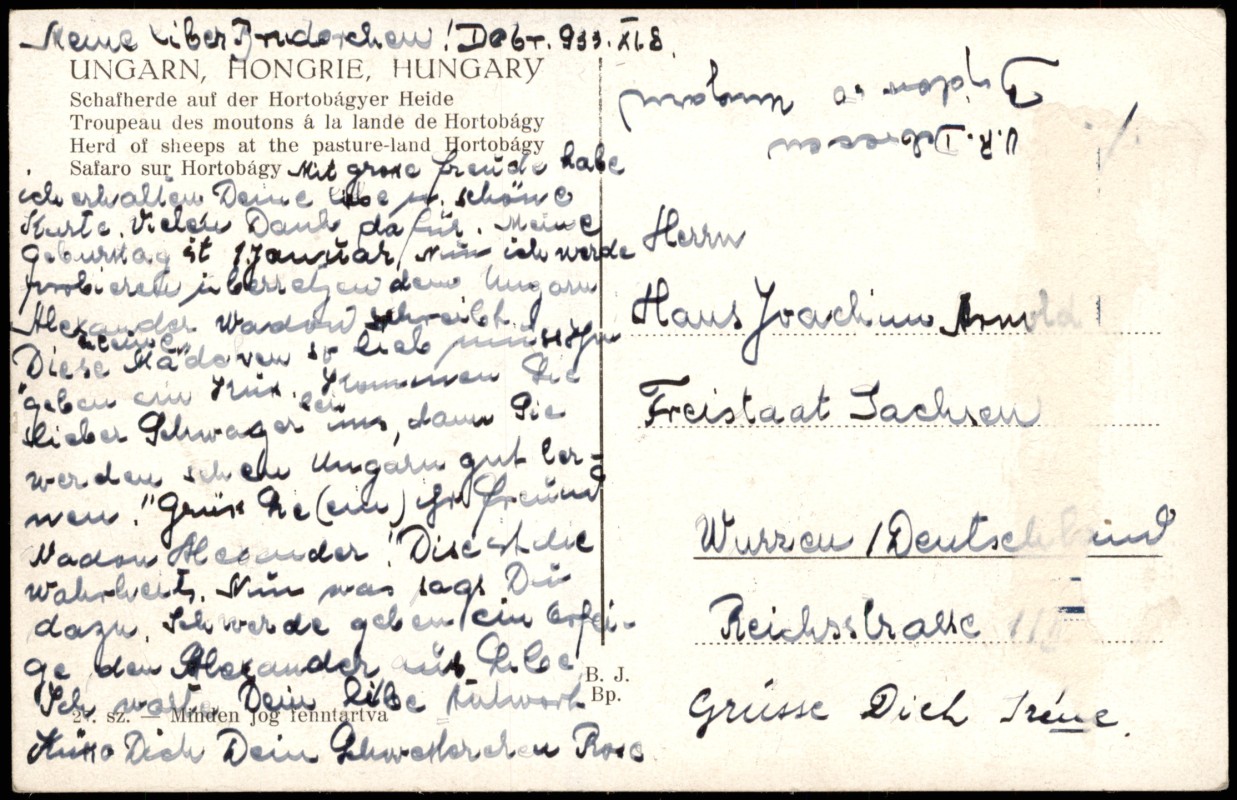 Meine liber Bruderchen! Debr. 933. XI. 8.
UNGARN, HONGRIE, HUNGARY
Schafherde auf der Hortobágyer Heide
Troupeau des moutons á la lande de Hortobágy
Herd of sheeps at the pasture-land Hortobágy
Safaro sur Hortobágy
Mit grose freude habe
ich erhalten Deine libe u. schöne
Karte. Vielen Dank dafür. Meine
geburstag ist 1 Januar, Nun ich werde
probieren übersetzen dem Ungarn
Alexander Nadon schreibt:
Diese kleines Mädchen so lieb
"geben ein Kuss. Kommen Sie
lieber Schwager bei uns, dann Sie
werden schon Ungarn gut ler-
nen." Grüst Sie (ein) ihr freund
Nadon Alexander! Dise ist die
wahrheit. Nun was sags Du
dazu. Ich werde geben ein orfei-
ge den Alexander aus Libe
Ich warte Dein libe Antwort
27. sz. — Minden jog fenntartva
Küsse Dich Dein Schwesterchen Rose
B. J.
Bp.
U.R. Debrecen
Herrn
Hans Joachim Arnold
Freistaat Sachsen
Wurzen / Deutschland
Reichsstrasse
Grüsse Dich Iréne.